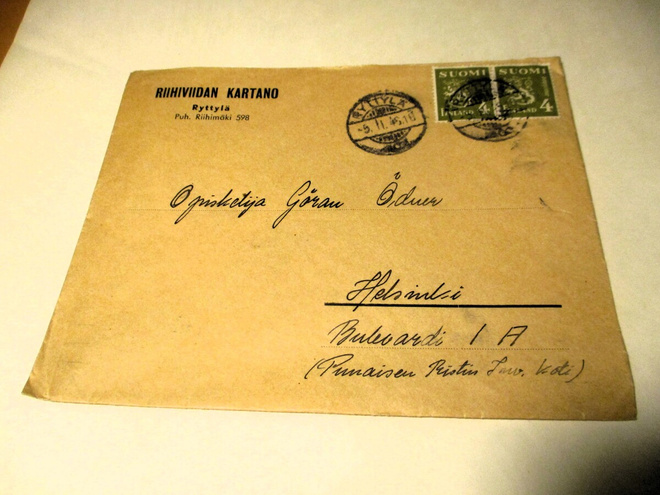 RIIHIVIIDAN KARTANO
Ryttylä
Puh. Riihimäki 598
RYTTYLÄ
-5.11.45.10
SUOMI SUOMI
FINLAND 4 4
Opiskelija Göran Ödner
Helsinki
Bulevardi 1 A
(Punaisen Ristin Inv. koti)